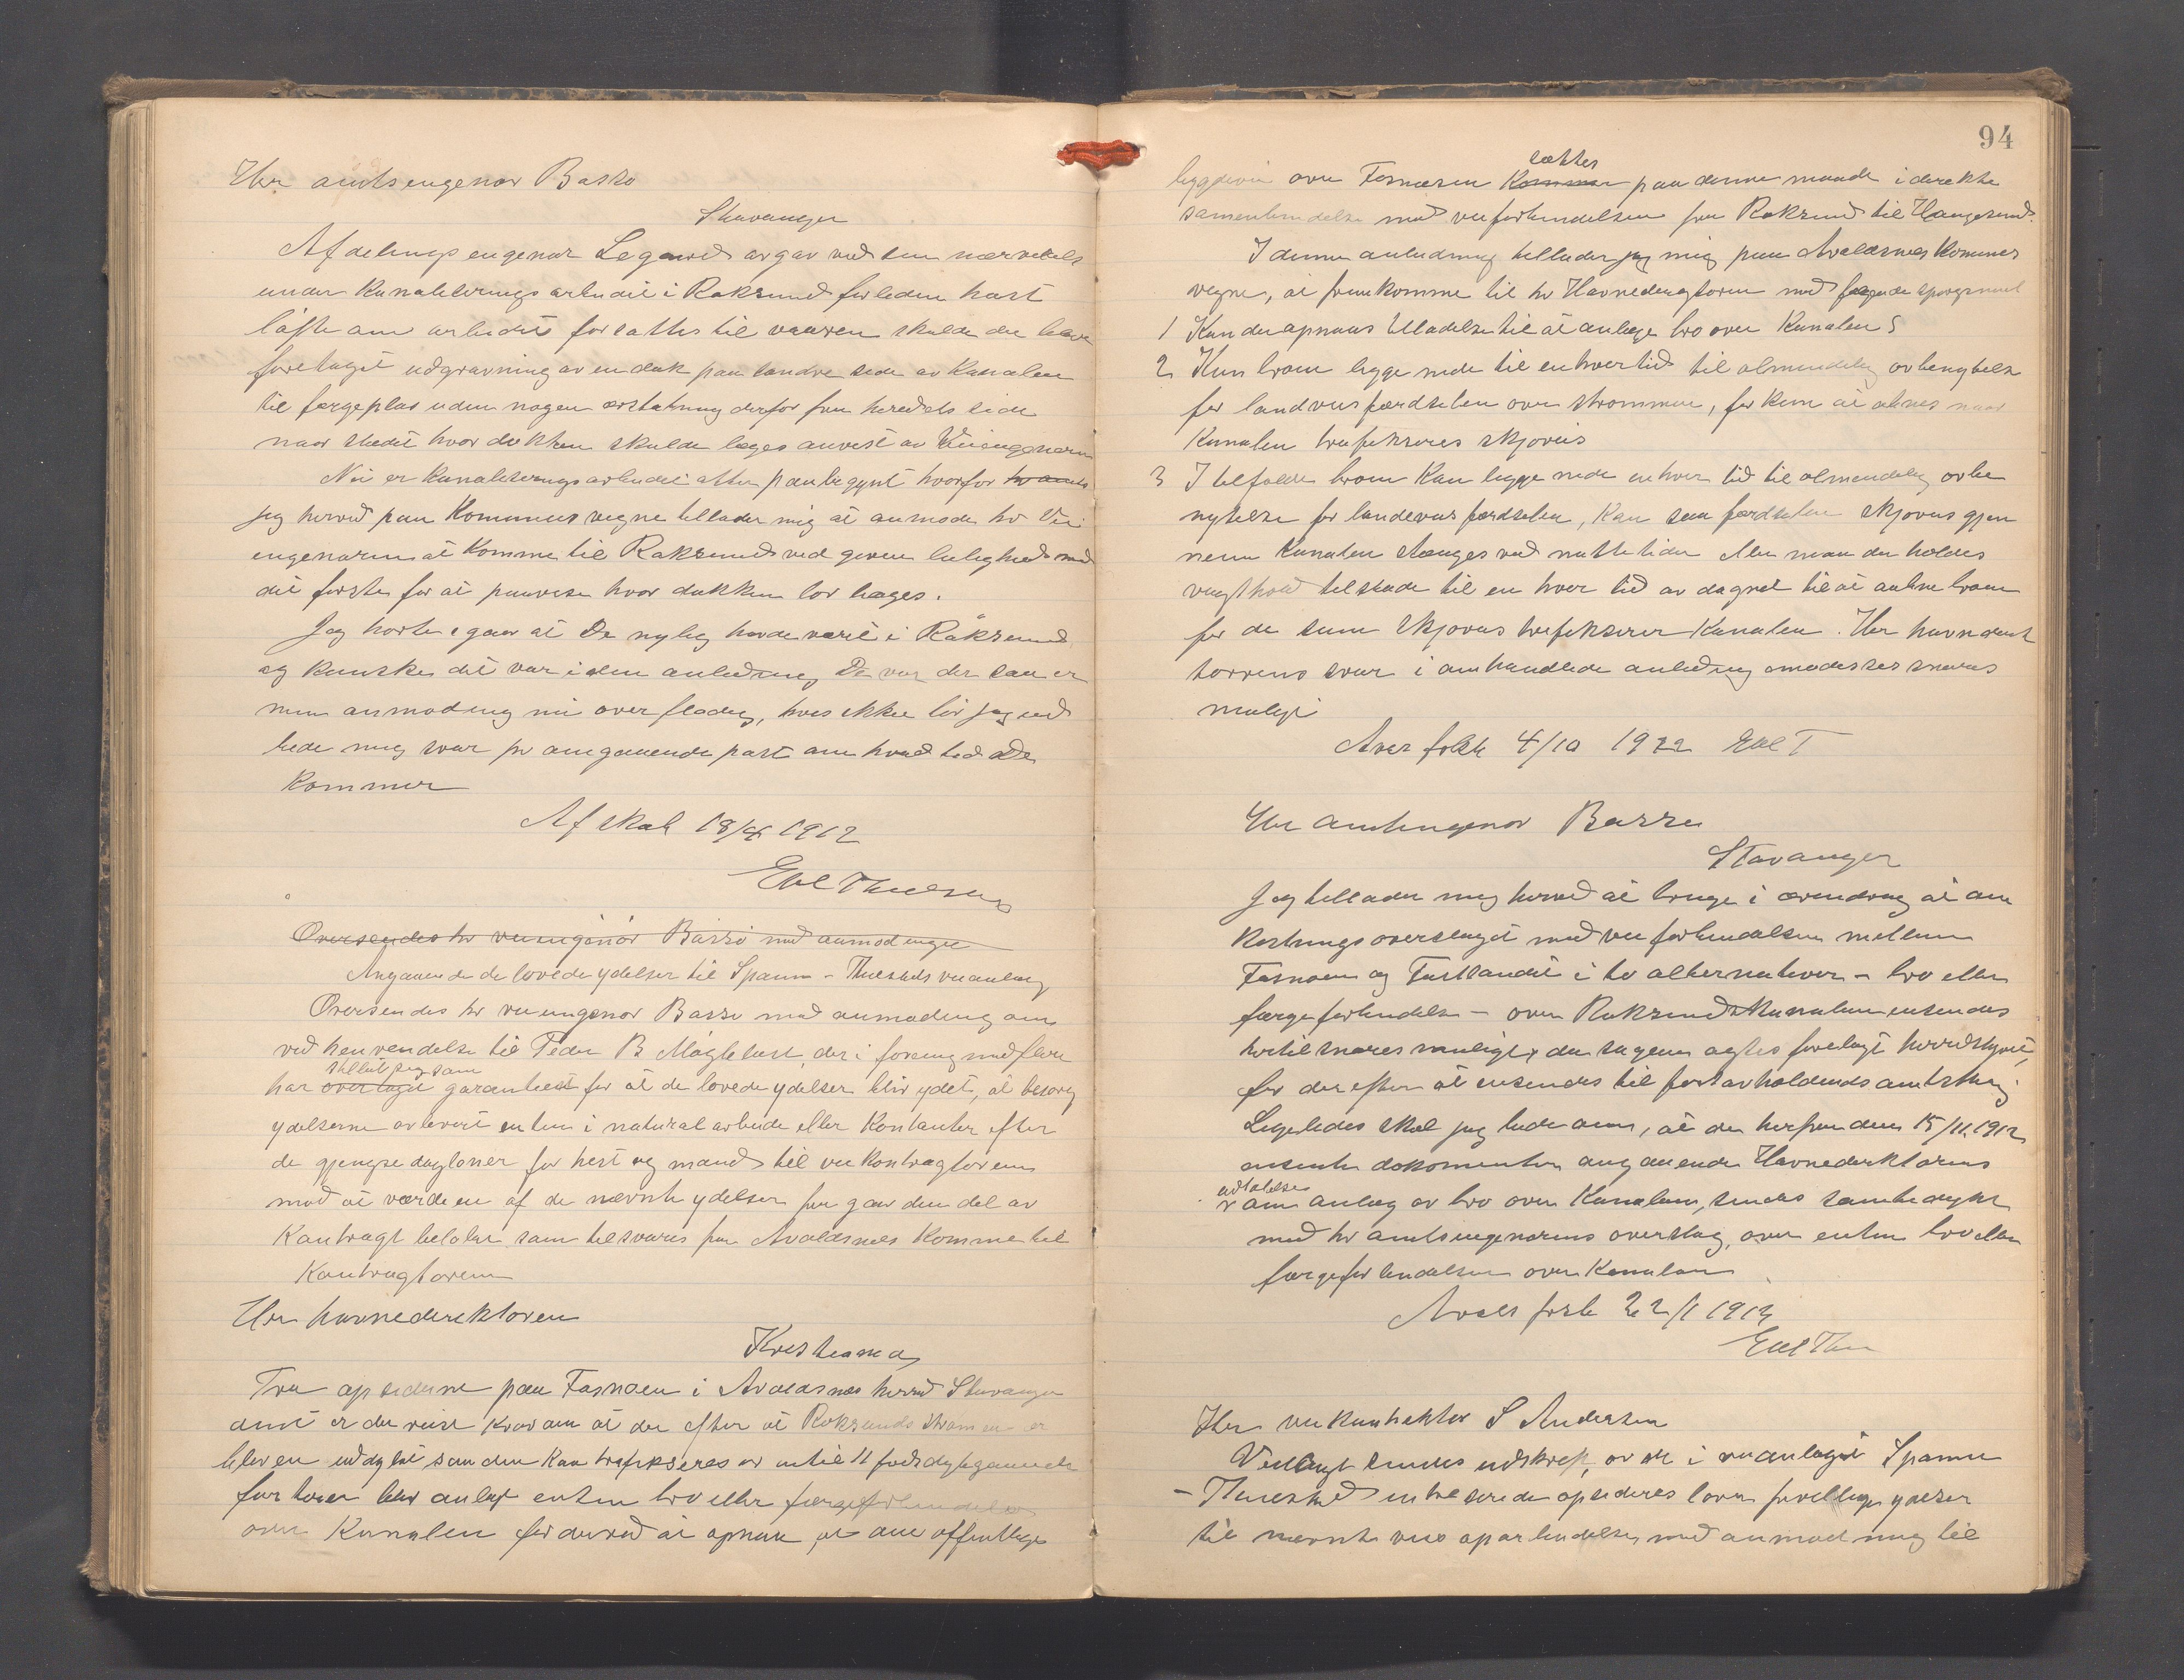 Hr amtsengenør Basso
Stavanger
Afdelings engenør Legaard avgav ved sin nærværels
under Kanaliserings arbudet i Røksund forleden høst
løfte om arbudet forsattes til vaaren skulde der blive
foretaget udgravning av en dok paa søndre side av Kanalen
til færgeplas uden nogen erstatning derfor fra heredets side
naar stedet hvor dokken skulde læges anvist av Veiengenørn
Nu er Kanaliseringsarbudet atter paabegynt hvorfor
jeg herved paa Komunens vegne tillader mig at anmode hr Vei
engenøren at komme til Røksund ved given leilighed med
det første for at paavise hvor dokken bør læges.
Jeg hørte igaar at De nylig havde været i Røksund
og kanske det var i den anledning De var der saa er
min anmodning nu overflødig, hvis ikke bør jeg ud
bede mig svar pr omgaaende post om hvad tid De
kommer
Af skab 18/4 1912
Evl Thuesen
Oversendes hr veiengenør Basso med anmodning
Angaaende de lovede ydelser til Spanne - Thuestads veianlæg
Oversendes hr veiengenør Basso med anmodning om
ved henvendelse til Peder B Møgletvst, der i forening med flere
stillet sig som
har overtaget garantiest for at de lovede ydelser blir ydet, at besørg
ydelserne avlevert enten i natural arbeide eller Kontanter efter
de gjengse dagløner for hest og mand til veikontragtøren
mod at værdien af de nævnte ydelser fragaar den del av
Kontragt beløbet som tilsvares fra Avaldsnes Komme til
Kontragtøren
Hr havnedirektøren
Kristiania
Fra opsidderne paa Fosnøen i Avaldsnes herred Stavanger
amt er der reist krav om at der efter at Røksunds strømmen er
bleven uddybet saa den kan trafikseres av intil 11 fods dybgaaende
fartøier blir anlagt enten bro eller færgeforbindelse
over Kanalen for derved at opnaa at den offentlige
94
sættes
over Fosnøen Kommer paa denne maade i direkte
samenbindelse med veiforbindelsen fra Røksund til Haugesund.
I denne anledning tillader jeg mig paa Avaldsnes Komunes
vegne, at fremkomme til hr Havnedirektøren med følgende spørgsmaal
1 Kan der opnaaes tilladelse til at anlæge bro over Kanalen?
2 Kan broen ligge nede til enhver tid til almindelig avbenytelse
for landveisfærdselen over strømmen, for kun at abnes naar
Kanalen trafikseres skjøveis
3 I tilfælde broen Kan ligge nede enhver tid til almendelig avbe
nytelse for landeveis færdselen, Kan saa færdselen skjøveis gjen
nem Kanalen stænges ved nattetider eller maa der holdes
vagthold tilstede til en hver tid av døgnet til at aabne broen
for de som skjøveis trafikserer Kanalen. Hr havnedirek
tørens svar i omhandlede anledning imødesses snarest
muligt
Avas folk 4/10 1912 Evl T
Hr amtsengenør Basso
Stavanger
Jeg tillader mig herved at bringe i erindring at om
Kostningsoverslaget med veiforbindelsen mellem
Fosnøen og Fastlandet i to alternativer - bro eller
færgeforbindelse - over Røksundskanalen insendes
hertil snares muligt, da sagen agtes forelagt herredstyret,
for derefter at insendes til førstavholdende amtsthing.
Ligeledes skal jeg bede om, at den herfra dem 15/11 1912
insente dokomenter angaaende Havnedirektørens
udtalelse
om anlæg av bro over Kanalen, sendes
med hr amtsingenørens overslag, over enten bro eller
færgeforbindelsen over Kanalen
Avals forsk 22/1 1913
Evl Thu
Hr veikontraktør S Andersen
Vedlagt sendes udskrift, av de i veianlæget Spanne
- Thuestad interserede opsideres lovn frivillige ydelser
til nævnte veis oparbeidelse, med anmodning til